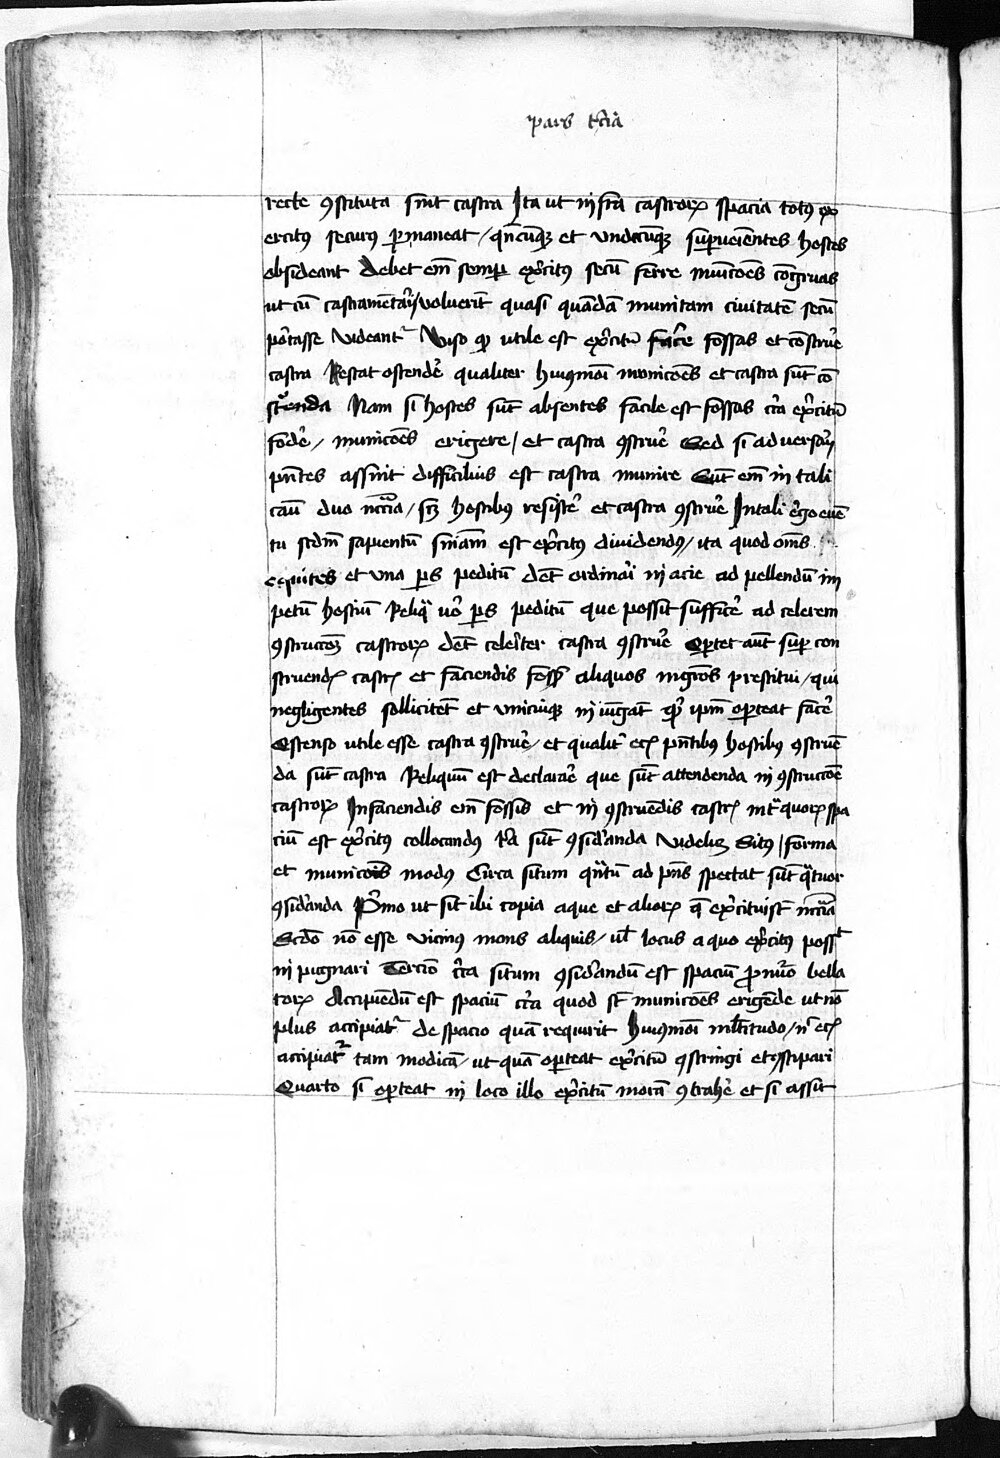 pars tcia
recte ꝯstituta sint castra Ita ut infra castroꝝ spacia totꝰ ex
ercitꝰ securꝰ ꝑmaneat / qn̄cūqꝫ et vndicūqꝫ suꝑueiētes hostes
obsideant Debet em̄ semꝑ ex̉citꝰ secū ferre municōes cōgruas
ut cū castrametari voluerīt quasi quādā munitam ciuitatē secū
portasse videant᷑ Viso qꝫ utile est ex̉citū facē fossas et cōstruē
castra Restat ostendē qualiter huiꝯmōi municōes et castra sūt cō
struenda Nam si hostes sūt absentes facile est fossas circa ex̉citū
fodē / municōes erigere / et castra ꝯstruē Sed si aduersarij
pn̄tes assint difficilius est castra munire Sūt em̄ in tali
casu duo nccͣia / scꝫ hostibus resistē et castra ꝯstruē In tali ergo euē
tu scdm̄ sapientū sniam est ex̉citꝰ diuidendꝰ / ita quod om̄s
equites et vna ꝑs peditū debet ordinari in acie ad pellendū im
petū hostium Reliqͣ uō ꝑs peditū que possit sufficē ad celerem
ꝯstructōeꝫ castroꝝ debet celeriter castra ꝯstruē Oꝑtet aūt suꝑ con
struendis castris et faciendis fossis aliquos magr̄os prestitui / qui
negligentes sollicitēt et vnicuiqꝫ in iūgāt qd ip̄m oꝑteat facē
Ostenso utile esse castra ꝯstruē / et qualit᷑ etiā pn̄tibus hostibus ꝯstruē
da sūt castra Reliquum est declarāe que sūt attendenda in ꝯstructōe
castroꝝ In faciendis em̄ fossis et in ꝯstruēdis castris intra quoꝝ spa
cium est ex̉citꝰ collocandꝰ tria sūt ꝯsideranda videlicꝫ Sitꝰ / forma
et municōis modꝰ Circa situm qͣntū ad pn̄s spectat sūt qͣtuor
ꝯsideranda Primo ut sit ibi copia aque et alioꝝ que ex̉citui sūt nccͣia
Scdo nō esse vicinus mons aliquis / uel locus a quo ex̉citus possit
in pugnari Tercio circa situm ꝯsiderandū est spaciū pro numero bella
toꝝ Accipiēdū est spaciū circa quod sūt municōes erigēde ut nō
plus accipiat᷑ de spacio quā requirit huiꝯmōi mltitudo / nec etiā
accipiat᷑ tam modicā / ut quā oꝑteat ex̉citū ꝯstringi et ꝯstipari
Quarto si oꝑteat in loco illo ex̉citū morā ꝯtrahē et si assit